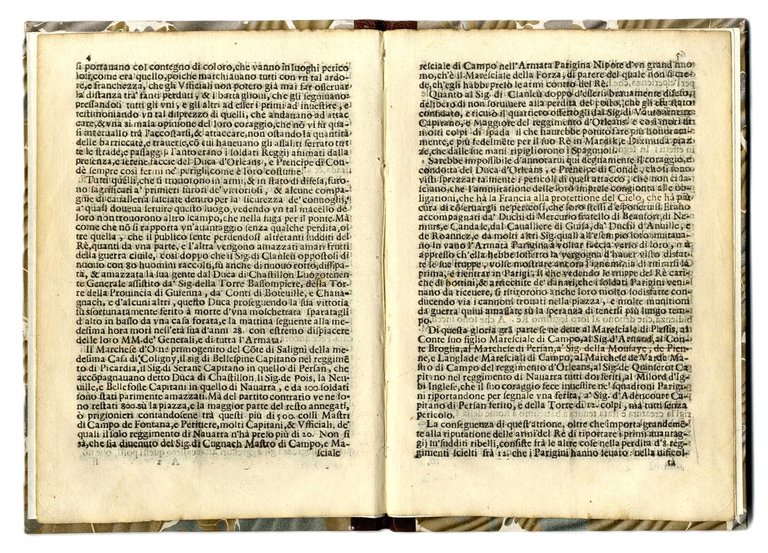 4
si portauano col contegno di coloro, che vanno in luoghi perico
losi, come era quello, poiche marchiauano tutti con vn tal ardo-
re, e franchezza, che gli Vfficiali non potero già mai far osseruar
la distanza trà fanti perduti, & i battaglioni, che gli seguitauano
pressandosi tutti gli vni, e gli altri ad esser i primi ad inuestire, e
testimoniando vn tal disprezo di quelli, che andauano ad attac-
care, & vna sì mala opinione del loro coraggio, che nō vi fù qua
si interuallo trà l'accostarsi, & attaccare, non ostando la quantità
delle barriccate, e trauerse, ò sia habenano gli assaliti serrato tut
te le strade, e passaggi l'anteorano i soldati Reggij animati dalla
presenza, e serene faccie del Duca d'Orleans, e Prencipe di Con-
dè sempre così fermi ne' perigli, come è loro costume.
Tutti quelli, che si trouorono in armi, & in istato di difesa, furo-
no sagrificati a' primi furori de' vittoriosi, & alcune compag-
gnie di caualleria lasciate dentro per la sicurezza de' conuoglij,
a' quali doueua seruire questo luogo, vedendo vn tal macello de'
loro non trouorono altro campo, che nella fuga per il ponte. Mà
come che nō si rapporta vn'auantaggio senza qualche perdita, ol
tre quella, che il publico sente perdendosi altretanti sudditi del
Rè, quanti da vna parte, e l'altra vengono amazzati frà i mali frutti
della guerra ciuile, così doppo che il Sig. di Clanleù oppostosi di
nuouo con 80 huomini raccolti, fù anche di nuouo rotto, disipa-
to, & amazzata la sua gente dal Duca di Chastillon Luogotenen-
te Generale assistito da' Sig. della Torre Bassompiere, della Torre
della Prouincia di Guienna, da Conti di Boteuille, e Chana-
gnach, e d'alcuni altri, questo Duca proseguendo la sua vittoria
fù sfortunatamente ferito à morte d'vna moschettata sparatagli
d'alto in basso da vna casa forata, e la mattina seguente alla me-
desima hora morì nell'età sua d'anni 28. con estremo dispiacere
delle loro MM. de' Generali, e di tutta l'Armata.
Il Marchese d'Orne primogenito del Cōte di Saligni della me-
desima Casa di Coligny, il Sig. di Bellespine Capitano nel reggimēto
di Picardia, il Sig. di Serant Capitano in quello di Persan, che
accōpagnauano detto Duca di Chastillon, il Sig. de Pois, la Net-
tuille, e Bellefosse Capitani in quello di Nauarra, e da 100 soldati
sono stati parimente amazzati. Mà del partito contrario ve ne so-
no restati 800. sù la piazza, e la maggior parte del resto annegati,
ò prigionieri contandosene trà questi più di 500 colli Mastri
di Campo de Fontana, e Petitiere, molti Capitani, & Vfficiali, de'
quali il solo reggimento di Nauarra n'hà preso più di 20. Non si
sà, che sia diuenuto del Sig. di Cugnach Mastro di Campo, e Ma-
sciale
resciale di Campo nell'Armata Parigina Nipote d'vn grand'huo
mo, ch'è il Maresciale della Forza, di parere del quale non si cre-
de, ch'egli habbi preso le armi contro del Rè.
Quanto al Sig. di Clanleù doppo d'essersi brauamente difeso,
deliberò di non soruiuere alla perdita del posto, che gli era stato
confidato, e ricusò il quartiero offertogli dal Sig. di Vautourneux
Capitano, e Maggiore del reggimento d'Orleans, e così morì cō
molti colpi di spada il che haurebbe potuto fare più honorata-
mente, e più fedelmente per il suo Rè in Mardik, e Dixmuda piaz
ze, che dalle di lui mani ripigliorono i Spagnuoli.
Sarebbe impossibile d'annotarui quì degnamente il coraggio, e
condotta del Duca d'Orleans, e Prencipe di Condè, che sono così
visti sprezzar talmente i pericoli di quest'attacco, che non si po-
sciano, che l'ammiratione delle loro imprese congionta alle obli-
gationi, che hà la Francia alla protettione del Cielo, che hà più
cura di conseruargli ne' pericoli, che loro stessi, ne quali si erano
accompagnati da' Duchi di Mercurio fratello di Beaufort, di Ne-
murs, e Candale, dal Caualliere di Guisa, da' Duchi d'Anuille, e
de Roannez, e da molti altri Sig. quali all'istesso tempo loro, muntauano
in vano l'Armata Parigina à voltar faccia verso di loro, in
appresso ch'ella hebbe sofferto la vergogna d'hauer visto disfa-
re le sue truppe, volse mostrare ancora l'ignominia della ritirata
prima, e rientrar in Parigi. Il che vedendo le truppe del Rè cari-
che di bottini, & arricchite de' danari, che i soldati Parigini have-
uano da riceuere, si ritirorono anche loro molto sodisfatte con-
ducendo via i cannoni trouati nella piazza, e molte munitioni
da guerra quiui amassate sù la speranza di tenersi più longo
tempo.
Di questa gloria grā parte se ne dette al Maresciale di Plessis, al
Conte suo figlio Maresciale di Campo, al Sig. d'Arnaud, al Con-
te Broglia, al Marchese di Persan, a' Sig. della Moussaye, de Pien-
ne, e Langlade Marescialì di Campo, al Marchese de Vardé Ma-
stro di Campo del reggimento d'Orleans, al Sig. de Quinserot Ca
pitano nel reggimento di Nauarra tutti dui feriti, al Milord d'Ig-
bi Inglese, che il suo coraggio fece inuestire ne' squadroni Parigini
riportandone per segnale vna ferita, a' Sig. d'Adencourt Ca-
pitano di Persan ferito, e della Torre di 12. colpi, mà tutti senza
Pericolo.
La conseguenza di quest'attione, oltre che importa grandemē-
te alla riputatione delle armi del Rè di riportare i primi auantag-
gij sù sudditi ribelli, consiste frà le altre cose nella perdita d'8 reg-
gimenti scielti frà 12, che i Parigini hanno leuato nella difficol-
tà